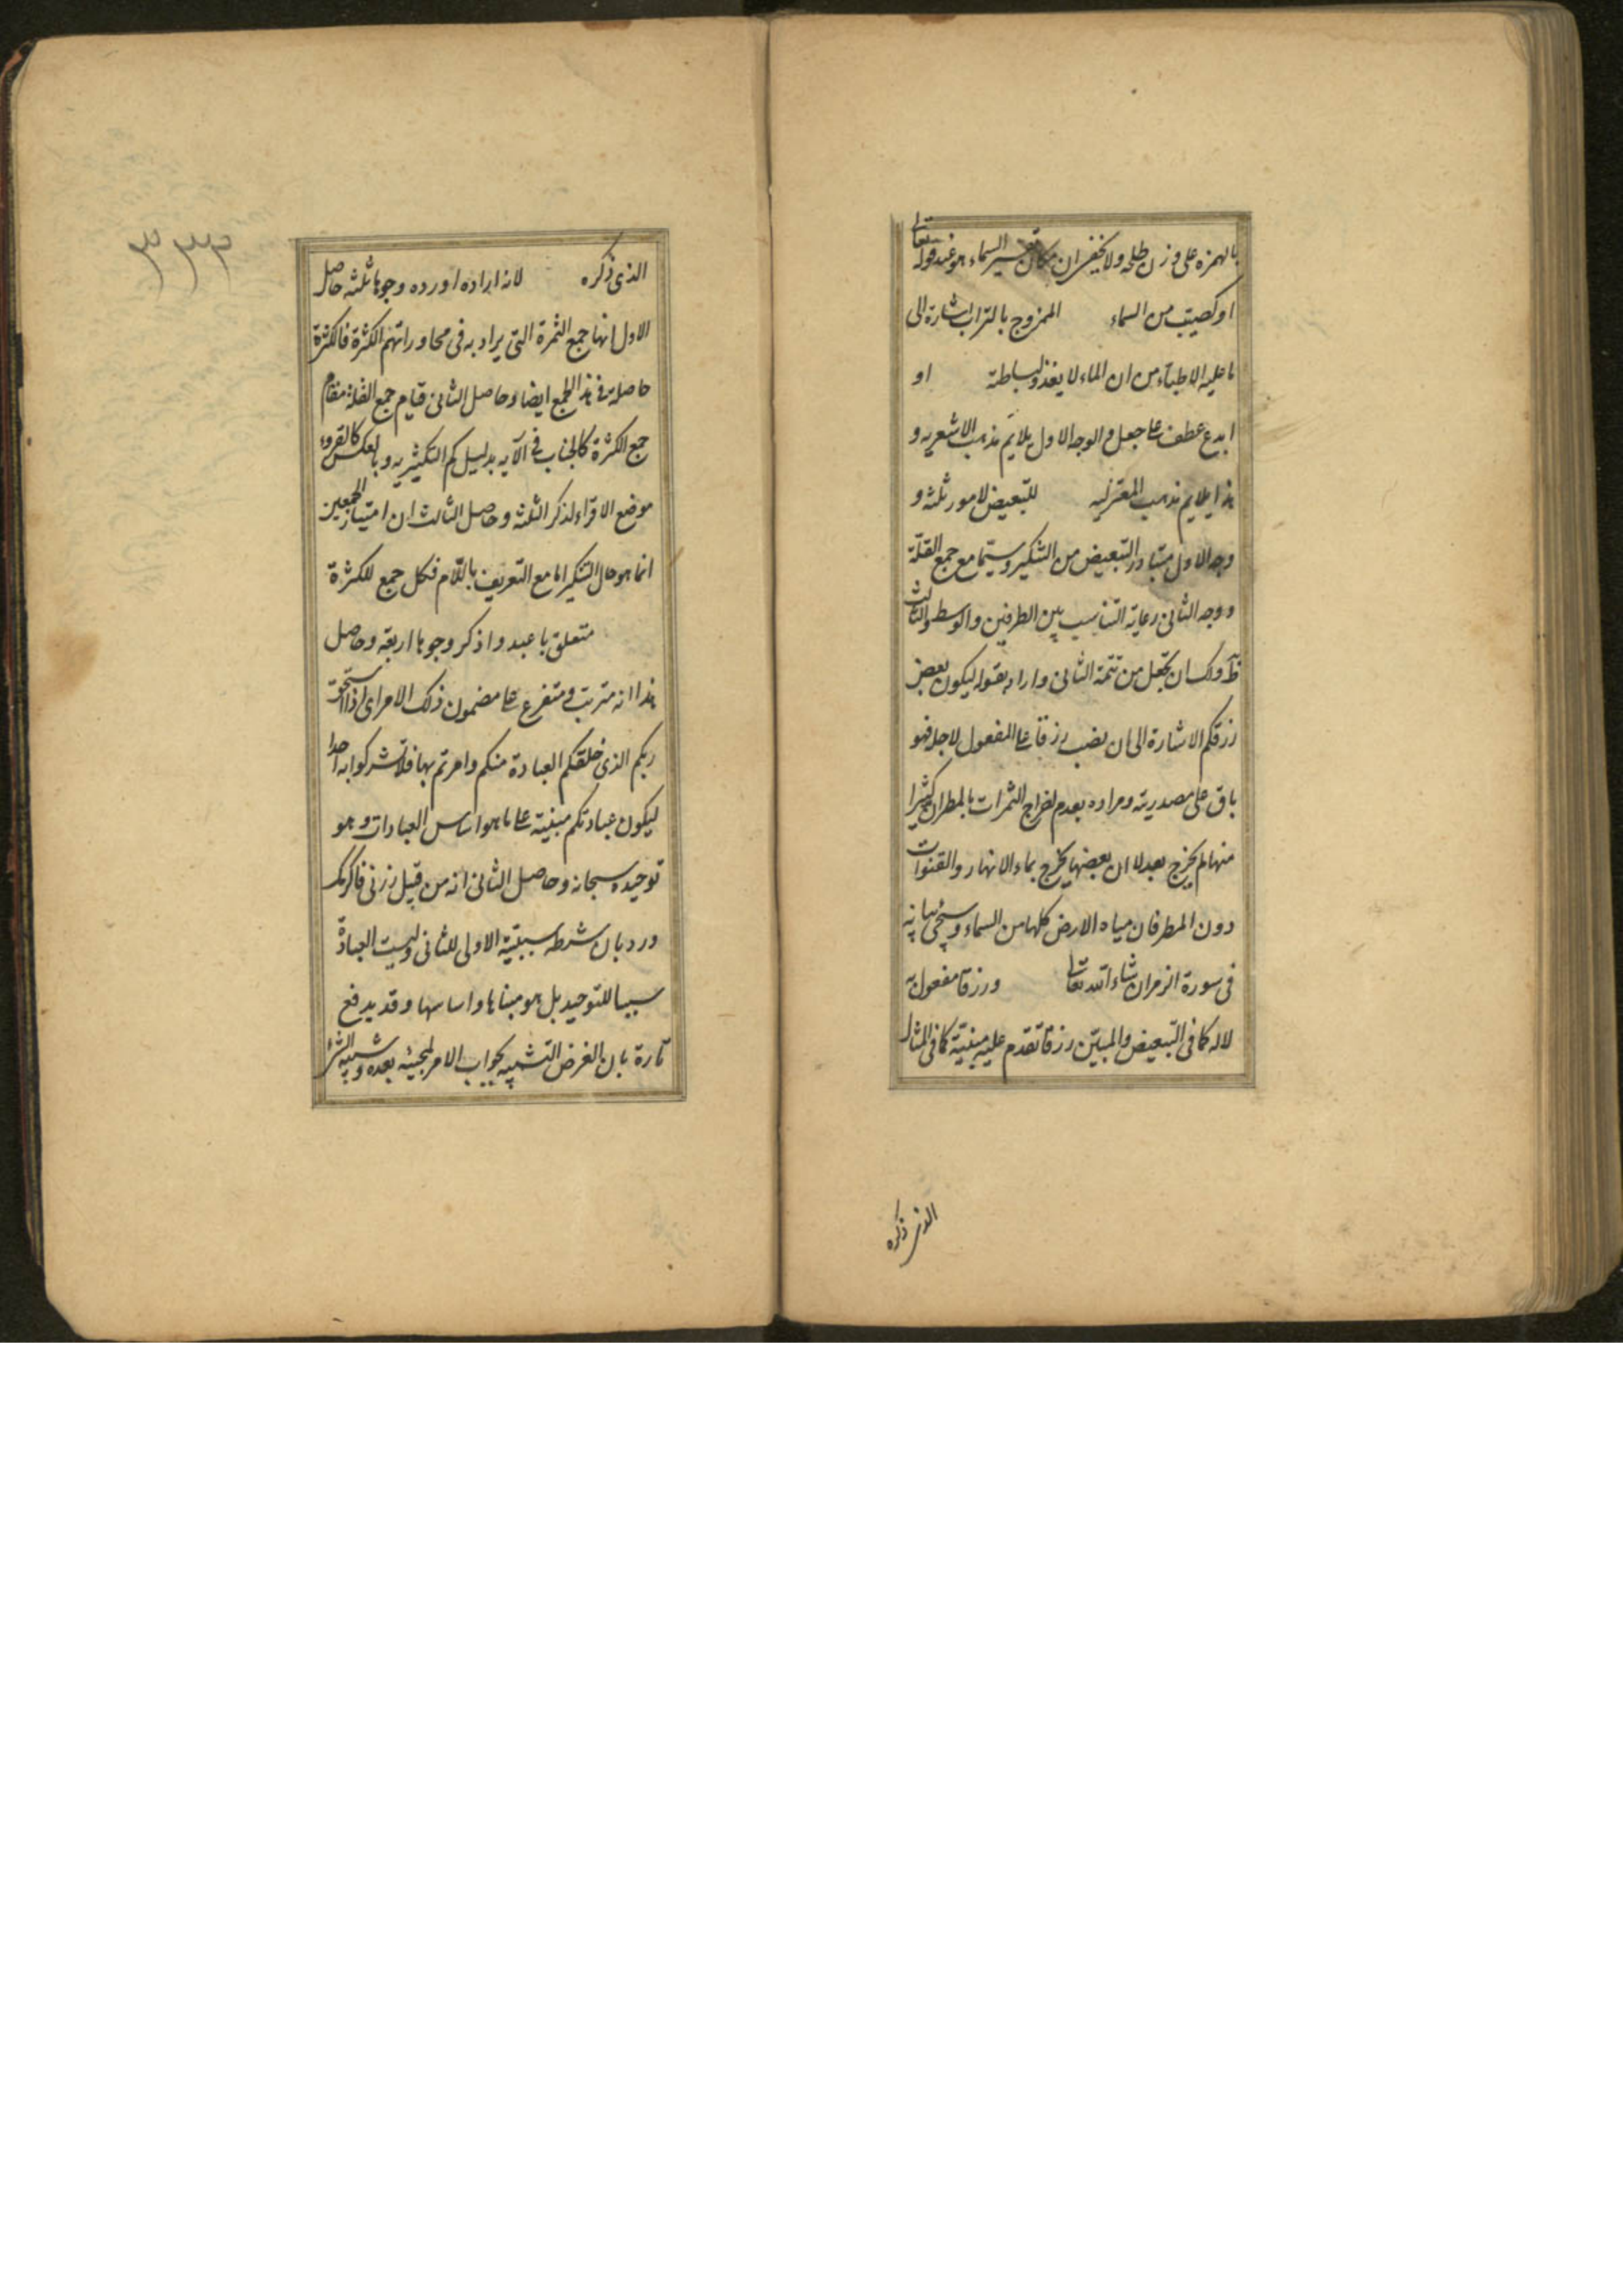 بالهمزه على وزن طلحه ولا يخفى ان مكان تفسير السماء هو عند قوله تعالى
او كصيب من السماء الممزوج بالتراب اشارة الى
ما عليه الاطباء من ان الماء لا يغذو لبساطته او
ابدع عطف على جعل والوجه الاول يلايم مذهب الاشعريه و
هذا يلايم مذهب المعتزليه للتبعيض لامور ثلثه و
وجه الاول تبادر التبعيض من التنكير وسيّما مع جمع القلّة
ووجه الثانى رعاية التناسب بين الطرفين والوسط والثالث
ظ ولك ان تجعل من تتمة الثانى واراد بقوله ليكون بعض
رزقكم الاشارة الى ان نصب رزقا على المفعول لاجله فهو
باق على مصدريته ومراده بعدم اخراج الثمرات بالمطر ان كثيرا
منها لم يخرج بعد لا ان بعضها يخرج بماء الانهار والقنوات
دون المطر فان مياه الارض كلها من السماء وسيجئ بيانه
فى سورة الزمر ان شاء الله تعالى ورزقا مفعول به
لا له كما فى التبعيض والمبيّن رزقا تقدم عليه مبنية كما فى المثال
الذى ذكره
٣٣٣
الذى ذكره لانه اراده اورده وجوها ثلثه حاصل
الاول انها جمع الثمرة التى يراد به فى محاوراتهم الكثرة فالكثرة
حاصلة فى هذا الجمع ايضا وحاصل الثانى قيام جمع القلة مقام
جمع الكثرة كالجنات فى الآيه بدليل كم التكثيريه وبالعكس كالقروء
موضع الاقراء لذكر الثلثه وحاصل الثالث ان امتياز الجمعين
انما هو حال التنكير اما مع التعريف باللّام فكل جمع للكثرة
متعلق باعبدوا ذكر وجوها اربعة وحاصل
هذا انه مترتب ومتفرع على مضمون ذلك الامر اى اذا استحق
ربكم الذى خلقكم العبادة منكم وامرتم بها فلا تشركوا به احدا
ليكون عبادتكم مبنية على ما هو اساس العبادات وهو
توحيده سبحانه وحاصل الثانى انه من قبيل زرنى فاكرمك
ورد بان شرطه سببيّة الاولى للثانى وليست العبادة
سببا للتوحيد بل هو مبناها واساسها وقد يدفع
تارة بان الغرض التشبيه بجواب الامر لمجيئه بعده وشبيه الشئ